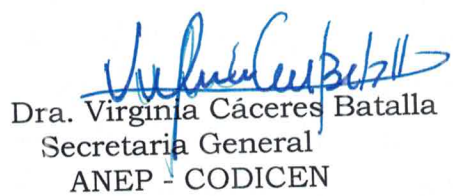 Dra. Virginia Cáceres Batalla
Secretaria General
ANEP - CODICEN